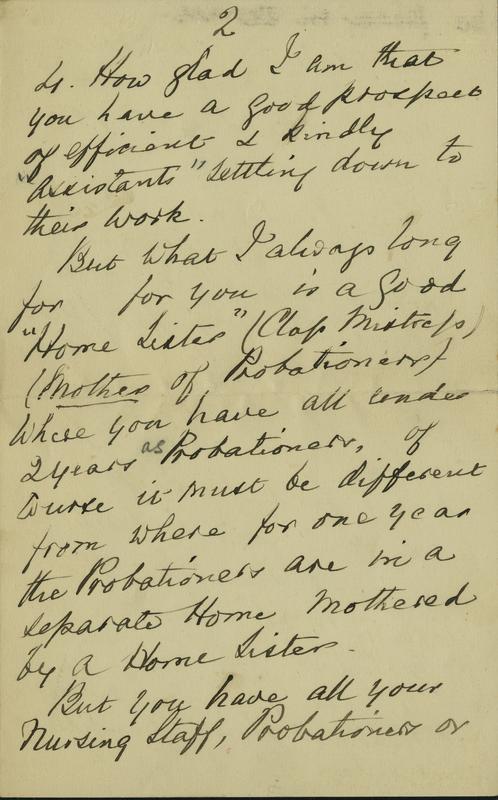 2
4. How glad I am that
you have a good prospect
of efficient & kindly
"Assistants" settling down to
their work.
But what I always long
for for you is a good
"Home Sister" (Class Mistress)
(Mother of Probationers)
Where you have all under
2 years as Probationers, of
course it must be different
from where for one year
the Probationers are in a
separate Home mothered
by a Home Sister.
But you have all your
Nursing Staff, Probationers or